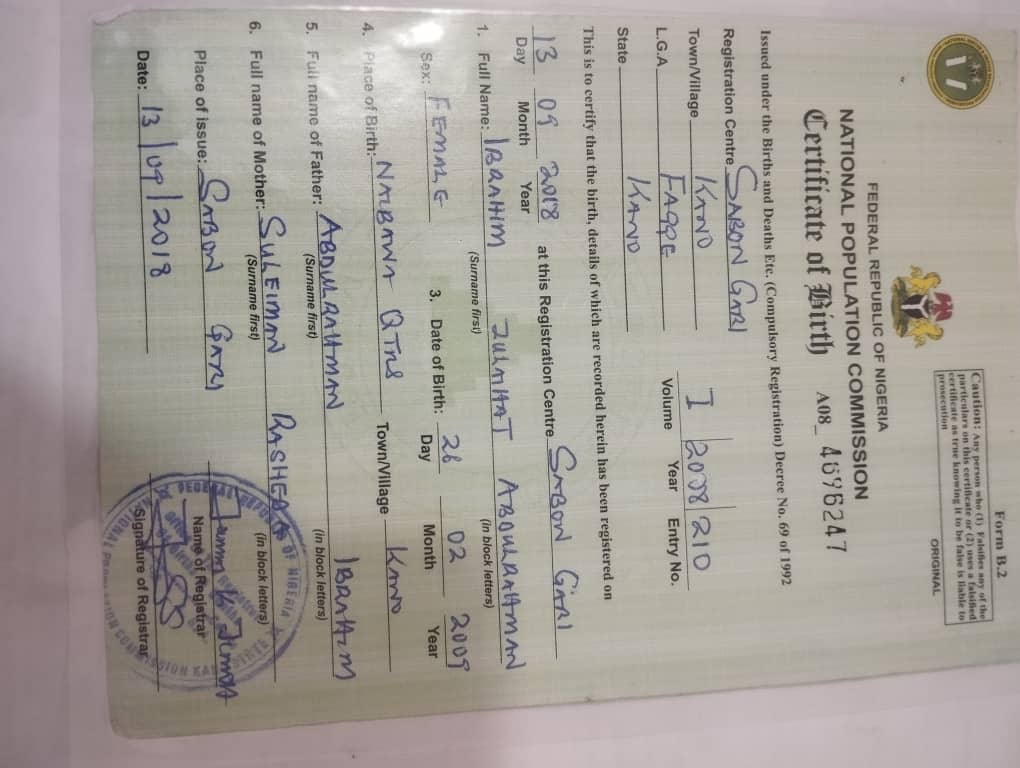 Form B.2
Caution: Any person who (1) Falsifies any of the
particulars on this certificate or (2) uses a falsified
certificate as true knowing it to be false is liable to
prosecution
ORIGINAL
FEDERAL REPUBLIC OF NIGERIA
NATIONAL POPULATION COMMISSION
Certificate of Birth A08_ 4696247
Issued under the Births and Deaths Etc. (Compulsory Registration) Decree No. 69 of 1992
Registration Centre SABON GARI
Town/Village KANO I 2008 210
L.G.A FAGGE Volume Year Entry No.
State KANO
This is to certify that the birth, details of which are recorded herein has been registered on
13 09 2018 at this Registration Centre SABON GARI
Day Month Year
1. Full Name: IBRAHIM ZULAIHAT ABDULRAHMAN
(Surname first) (in block letters)
Sex: FEMALE 3. Date of Birth: 28 02 2009
Day Month Year
4. Place of Birth: NAIBAWA QTRS Town/Village KANO
5. Full name of Father: ABDULRAHMAN IBRAHIM
(Surname first) (in block letters)
6. Full name of Mother: SULEIMAN RASHEDA
(Surname first) (in block letters)
Place of issue: SABON GARI
Name of Registrar
Date: 13/09/2018 Signature of Registrar